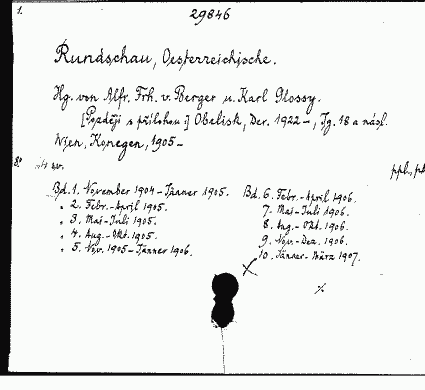 1.
29846
Rundschau, Oesterreichische.
Hg. von Alfr. Frh. v. Berger u. Karl Glossy.
[Později s přílohou:] Obelisk, Dez. 1922 -, Jg. 18 a násl.
Wien, Konegen, 1905 -
8°
ppl., pk
Bd. 1. November 1904 - Jänner 1905.
„ 2. Febr. - April 1905.
„ 3. Mai - Juli 1905.
„ 4. Aug. - Okt. 1905.
„ 5. Nov. 1905 - Jänner 1906.
Bd. 6. Febr. - April 1906.
7. Mai - Juli 1906.
8. Aug. - Okt. 1906.
9. Nov. - Dez. 1906.
10. Jänner - März 1907.